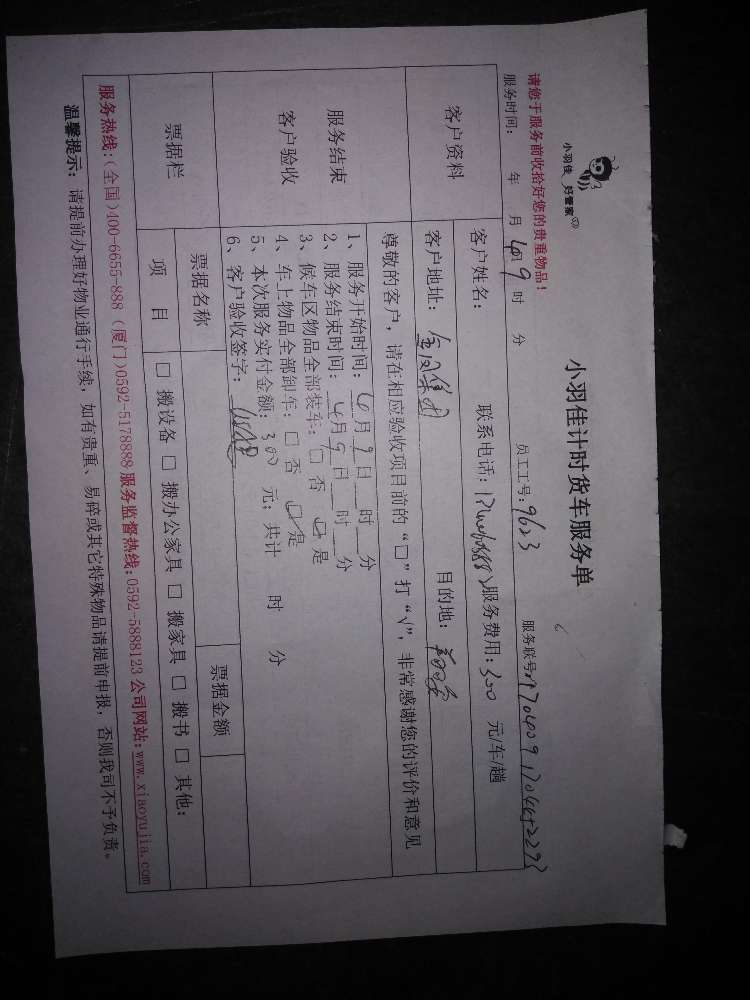 小羽佳 好管家
小羽佳计时货车服务单
请您于服务前收拾好您的贵重物品！
服务时间： 年 月 日 49 时 分 员工工号：9623 服务联号：
客户资料
客户姓名： 联系电话： 服务费用：300 元/车/趟
客户地址： 目的地：
尊敬的客户，请在相应验收项目前的“□”打“√”，非常感谢您的评价和意见
服务结束
客户验收
1、服务开始时间： 月 9 日 时 分
2、服务结束时间： 月 9 日 时 分
3、候车区物品全部装车：□ 否 □ 是
4、车上物品全部卸车：□ 否 □ 是
5、本次服务实付金额：300 元；共计 时 分
6、客户验收签字：
票据栏
票据名称 票据金额
项 目 □ 搬设备 □ 搬办公家具 □ 搬家具 □ 搬书 □ 其他：
服务热线：（全国）400-6655-888（厦门）0592-5178888 服务监督热线：0592-5888123 公司网站：www.xiaoyujia.com
温馨提示：请提前办理好物业通行手续，如有贵重、易碎或其它特殊物品请提前申报，否则我司不予负责。